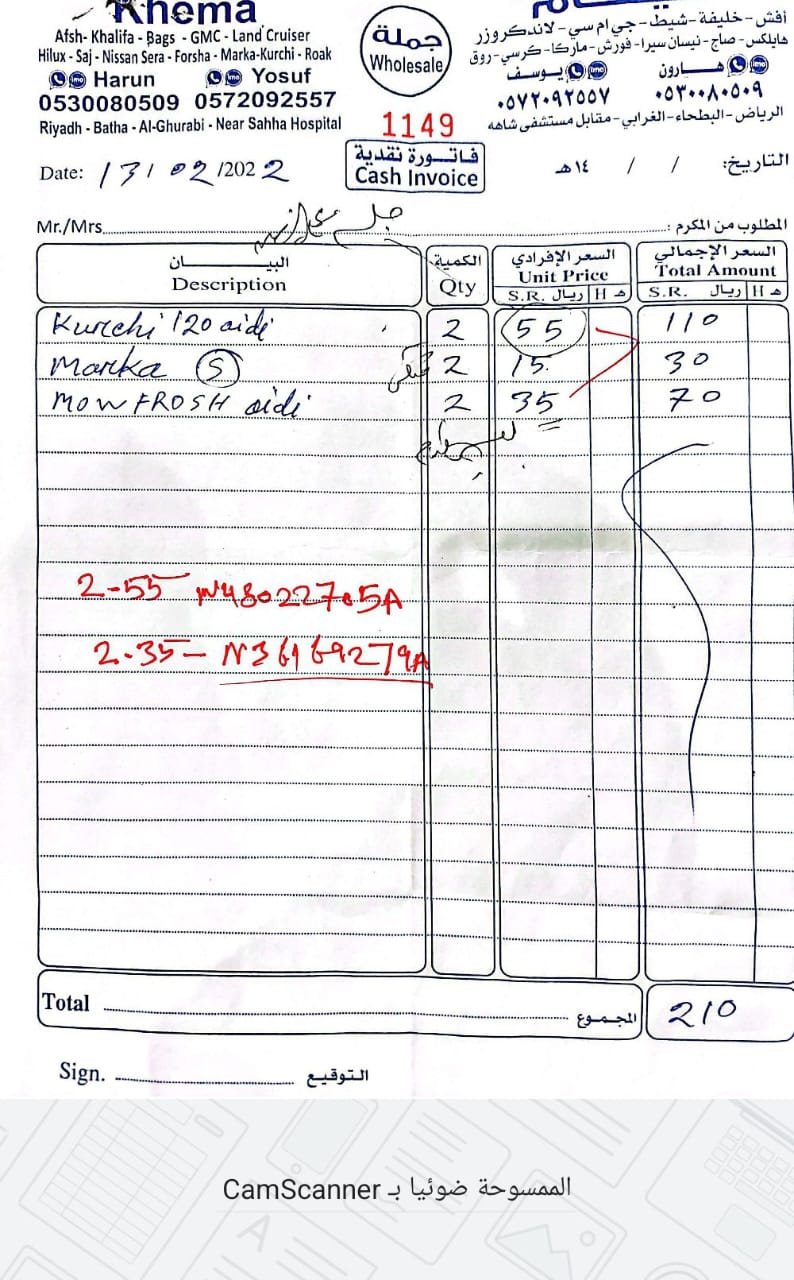 Khema
Afsh- Khalifa - Bags - GMC - Land Cruiser
Hilux - Saj - Nissan Sera - Forsha - Marka-Kurchi - Roak
Harun Yosuf
0530080509 0572092557
Riyadh - Batha - Al-Ghurabi - Near Sahha Hospital
جملة
Wholesale
أفش - خليفة - شيط - جي ام سي - لاندكروزر
هايلكس - صاج - نيسان سيرا - فورش - ماركا - كرسي - روق
هارون يوسف
٠٥٣٠٠٨٠٥٠٩ ٠٥٧٢٠٩٢٥٥٧
الرياض - البطحاء - الغرابي - مقابل مستشفى شاهه
1149
فاتورة نقدية
Cash Invoice
Date: 13/02/2022
التاريخ: / / ١٤هـ
Mr./Mrs. المطلوب من المكرم:
البيان الكمية السعر الإفرادي السعر الإجمالي
Description Qty Unit Price Total Amount
S.R. ريال H هـ S.R. ريال H هـ
Kurchi 120 aidi 2 55 110
Marka S 2 15 30
MOWFROSH aidi 2 35 70
2-55 N48022705A
2-35- N36169279A
Total المجموع 210
Sign. التوقيع
الممسوحة ضوئيا بـ CamScanner